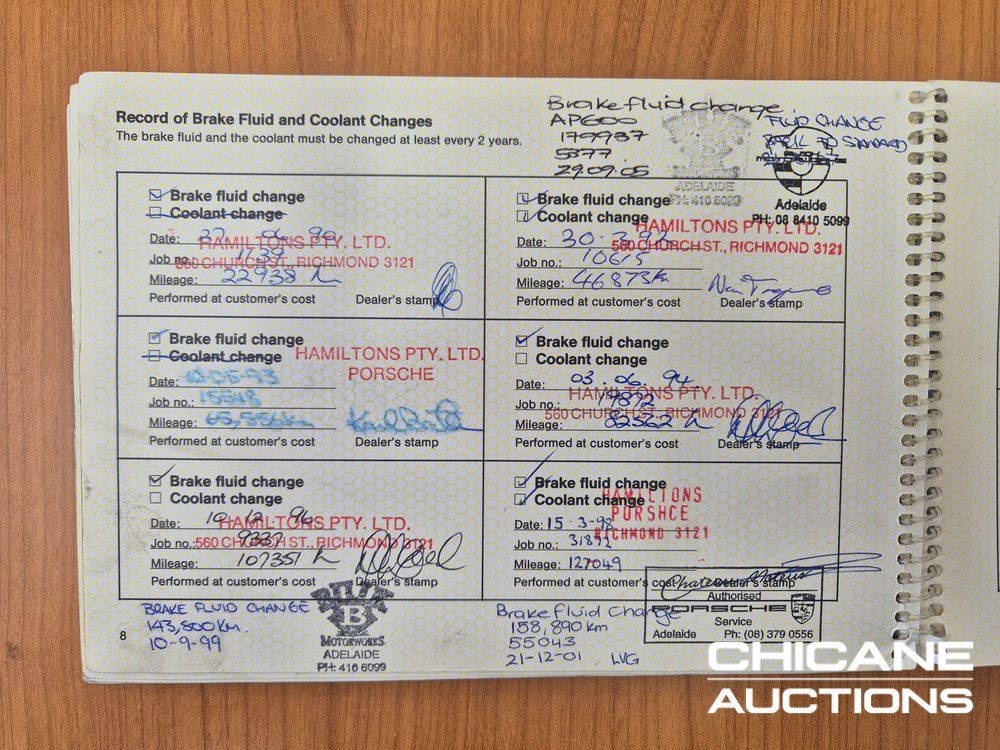 Record of Brake Fluid and Coolant Changes
The brake fluid and the coolant must be changed at least every 2 years.
Brake fluid change.
AP600
179937
5377
29.09.05
ADELAIDE
PH: 410 6099
FLUID CHANGE
BACK TO STANDARD
Adelaide
PH: 08 8410 5099
Brake fluid change
Coolant change
Date: 27 06 90
Job no.: 1139
Mileage: 22938 K
Performed at customer's cost Dealer's stamp
HAMILTONS PTY. LTD.
560 CHURCH ST., RICHMOND 3121
Brake fluid change
Coolant change
Date: 30.3.92
Job no.: 10615
Mileage: 46873km
Performed at customer's cost Dealer's stamp
HAMILTONS PTY. LTD.
560 CHURCH ST., RICHMOND 3121
Brake fluid change
Coolant change
Date: 10-05-93
Job no.: 15548
Mileage: 65,556km
Performed at customer's cost Dealer's stamp
HAMILTONS PTY. LTD.
PORSCHE
Brake fluid change
Coolant change
Date: 03.06.94
Job no.: 19872
Mileage: 82562 K
Performed at customer's cost Dealer's stamp
HAMILTONS PTY. LTD.
560 CHURCH ST., RICHMOND 3121
Brake fluid change
Coolant change
Date: 10 12 96
Job no.: 9337
Mileage: 107351 K
Performed at customer's cost Dealer's stamp
HAMILTONS PTY. LTD.
560 CHURCH ST., RICHMOND 3121
Brake fluid change
Coolant change
Date: 15-3-98
Job no.: 31872
Mileage: 127049
Performed at customer's cost Dealer's stamp
HAMILTONS
PORSHCE
RICHMOND 3121
BRAKE FLUID CHANGE
143,800km.
10-9-99
BUIK
B
MOTORWORKS
ADELAIDE
PH: 410 6099
Brake fluid Change
158,890km
55043
21-12-01 LVG
Authorised
PORSCHE
Service
Adelaide Ph: (08) 379 0556
8
CHICANE
AUCTIONS